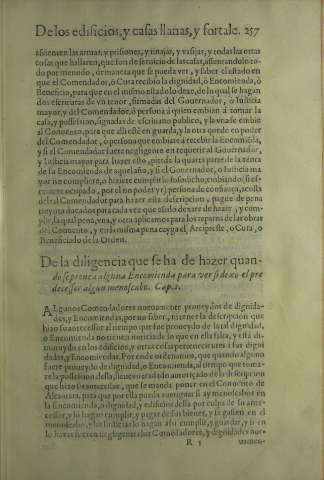 De los edificios, y casas llanas, y fortale. 257
assienten las armas, y prisiones, y tinajas, y vasijas, y todas las otras
cosas que hallaren, que son de servicio de las casas, assentandolo to-
do por menudo, de manera que se pueda ver, y saber el estado en
que el Comendador, ò Cura recibio la dignidad, ò Encomienda, ò
Beneficio, para que en el mismo estado lo dexe, de lo qual se hagan
dos escrituras de vn tenor, firmadas del Governador, ò Iusticia
mayor, y del Comendador, ò persona à quien embian à tomar la
casa, y possession, signadas de escrivano publico, y la vna se embie
al Convento, para que alli estè en guarda, y la otra quede en poder
del Comendador, ò persona que embiare à recibir la Encomienda,
y si el Comendador fuere negligente en requerir al Governador,
y Iusticia mayor para hazer esto, pierda la quarta parte de la renta
de su Encomienda de aquel año, y si el Governador, ò Iusticia ma
yor no cumpliere, ò hiziere cumplir lo susodicho,
cuere ocupado, por el no poder yr) persona de confiança, a costa
del tal Comendador para hazer esta descripcion, pague de pena
treynta ducados para cada vez que assi lo dexare de hazer, y com-
plir, la qual pena, vna, y otra aplicamos para los reparos de las obras
del Convento, y en la misma pena cayga el Arcipreste, ò Cura, ò
Beneficiado de la Orden.
De la diligencia que se ha de hazer quan-
do se provea alguna Encomienda para ver si dexò el pre
decessor algun menoscabo. Cap. 2.
Algunos Comendadores nuevamente proveydos de dignida-
des, y Encomiendas, por no saber, ni tener la descripcion que
hizo su antecessor al tiempo que fue proveydo de la tal dignidad,
ò Encomienda no tienen noticia de lo que en ella falta, y està di-
minuydo en los edificios, y otras cosas pertenecientes à las digni
dades, y Encomiendas. Por ende ordenamos, que quando alguno
fuere proveydo de dignidad, ò Encomienda, al tiempo que toma-
re la possession della, lleve traslado autorizado de la descripcion
que hizo su antecessor, que se manda poner en el Convento de
Alcantara, para que por ella pueda averiguar si ay menoscabos en
la Encomienda, ò dignidad, y edificios della por culpa de su ante-
cessor, y lo hagan cumplir, y pagar de sus bienes, y se gasten en el
menoscabo, y las Iusticias lo hagan assi cumplir, y guardar, y si en
lo hazer fueren negligentes los Comendadores, y dignidades nue-
R 5